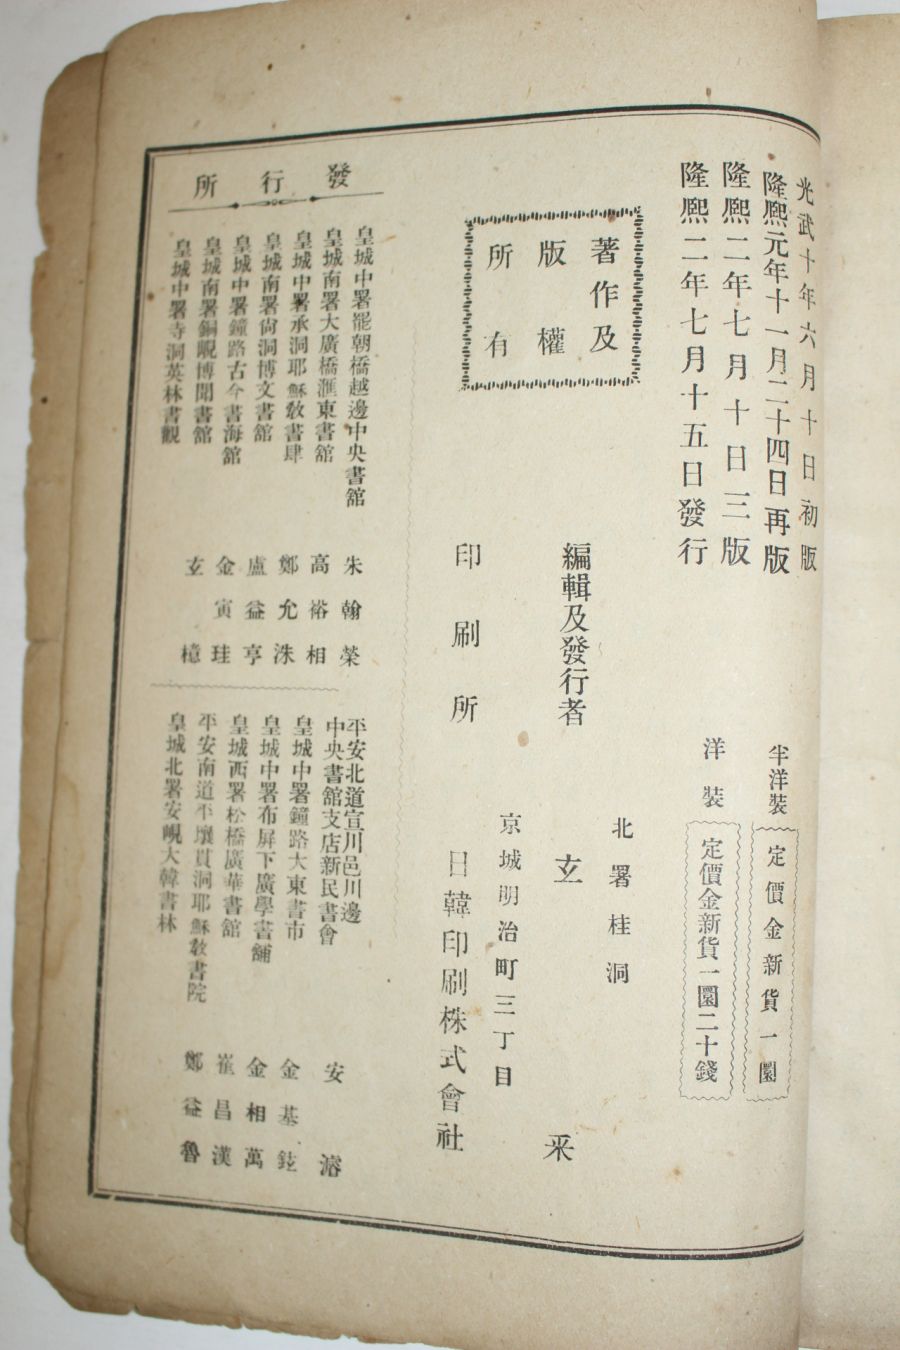 光武十年六月十日初版
隆熙元年十一月二十四日再版
隆熙二年七月十日三版
隆熙二年七月十五日發行
半洋裝
定價金新貨一圜
洋裝
定價金新貨一圜二十錢
著作及
版權
所有
編輯及發行者
北署桂洞
玄采
印刷所
京城明治町三丁目
日韓印刷株式會社
發行所
皇城中署罷朝橋越邊中央書舘
朱翰榮
皇城南署大廣橋滙東書舘
高裕相
皇城中署承洞耶穌敎書肆
鄭允洙
皇城南署尙洞博文書舘
盧益亨
皇城中署鐘路古今書海舘
金寅珪
皇城南署銅峴博聞書舘
皇城中署寺洞英林書觀
玄檍
平安北道宣川邑川邊
中央書舘支店新民書會
安濬
皇城中署鐘路大東書市
金基鉉
皇城中署布屏下廣學書舖
金相萬
皇城西署松橋廣華書舘
崔昌漢
平安南道平壤貫洞耶穌敎書院
皇城北署安峴大韓書林
鄭益魯